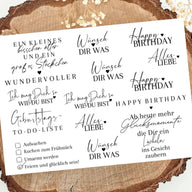 EIN KLEINES
bisschen älter
und ein
großes Stückchen
WUNDERVOLLER
Wünsch
DIR WAS
Happy
BIRTHDAY
Wünsch
DIR WAS
Happy
BIRTHDAY
Ich mag Dich so
WIE DU BIST
Alles
LIEBE
Ich mag Dich so
WIE DU BIST
Geburtstags-
TO-DO-LISTE
Aufwachen
Kuchen zum Frühstück
Umarmt werden
Feiern und glücklich sein!
Wünsch
DIR WAS
Alles
LIEBE
Ab heute mehr
Glücksmomente
die Dir ein
Lächeln
ins Gesicht
zaubern